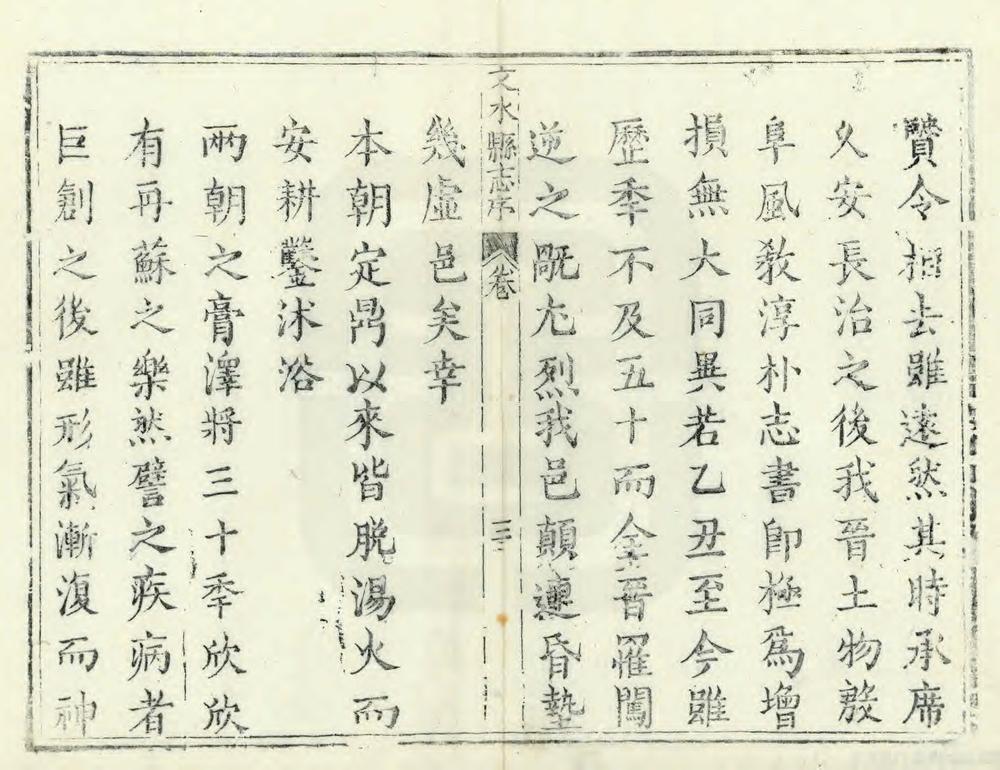 贊令相去雖遠然其時承席
久安長治之後我晉土物殷
阜風敎淳朴志書即極爲增
損無大同異若乙丑至今雖
歷秊不及五十而全晉罹闖
逆之
尤烈我邑顛連昏墊
文水縣志序
卷
三
幾虛邑矣幸
本朝定鼎以來皆脫湯火而
安耕鑿沐浴
兩朝之膏澤將三十秊欣欣
有再蘇之樂然譬之疾病者
巨創之後雖形氣漸復而神